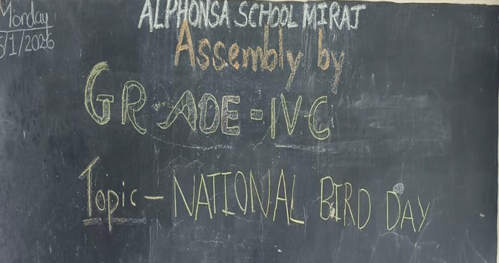 Monday
5/1/2026
ALPHONSA SCHOOL MIRAJ
Assembly by
GRADE-IV-C
Topic - NATIONAL BIRD DAY